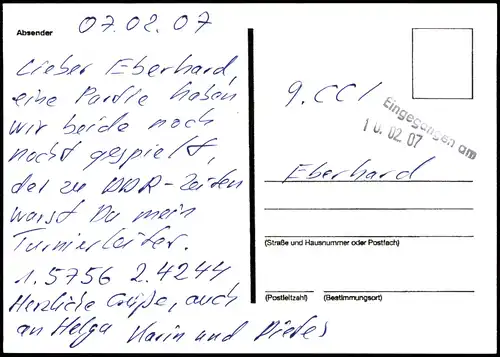 Absender
07.02.07
Lieber Eberhard,
eine Partie haben
wir beide noch
nocht gespielt,
der zu DDR-Zeiten
warst Du mein
Turnierleiter.
1. 5756 2. 4244
Herzliche Grüße, auch
an Helga Karin und Dieter
9. CCI
Eingegangen am
10. 02. 07
Eberhard
(Straße und Hausnummer oder Postfach)
(Postleitzahl) (Bestimmungsort)